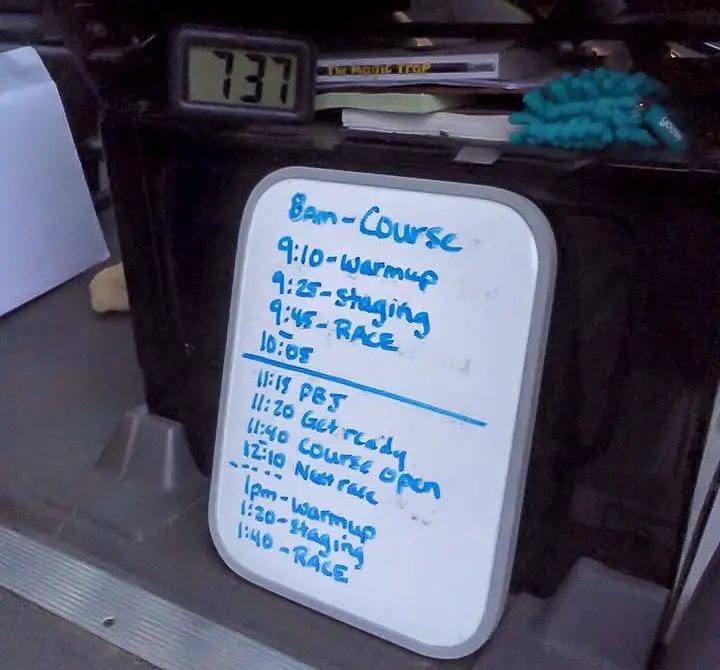 737
The Magic Trap
8am - Course
9:10 - warmup
9:25 - Staging
9:45 - RACE
10:05
11:15 PBJ
11:20 Get ready
11:40 Course open
12:10 Next race
1pm - Warmup
1:20 - Staging
1:40 - RACE